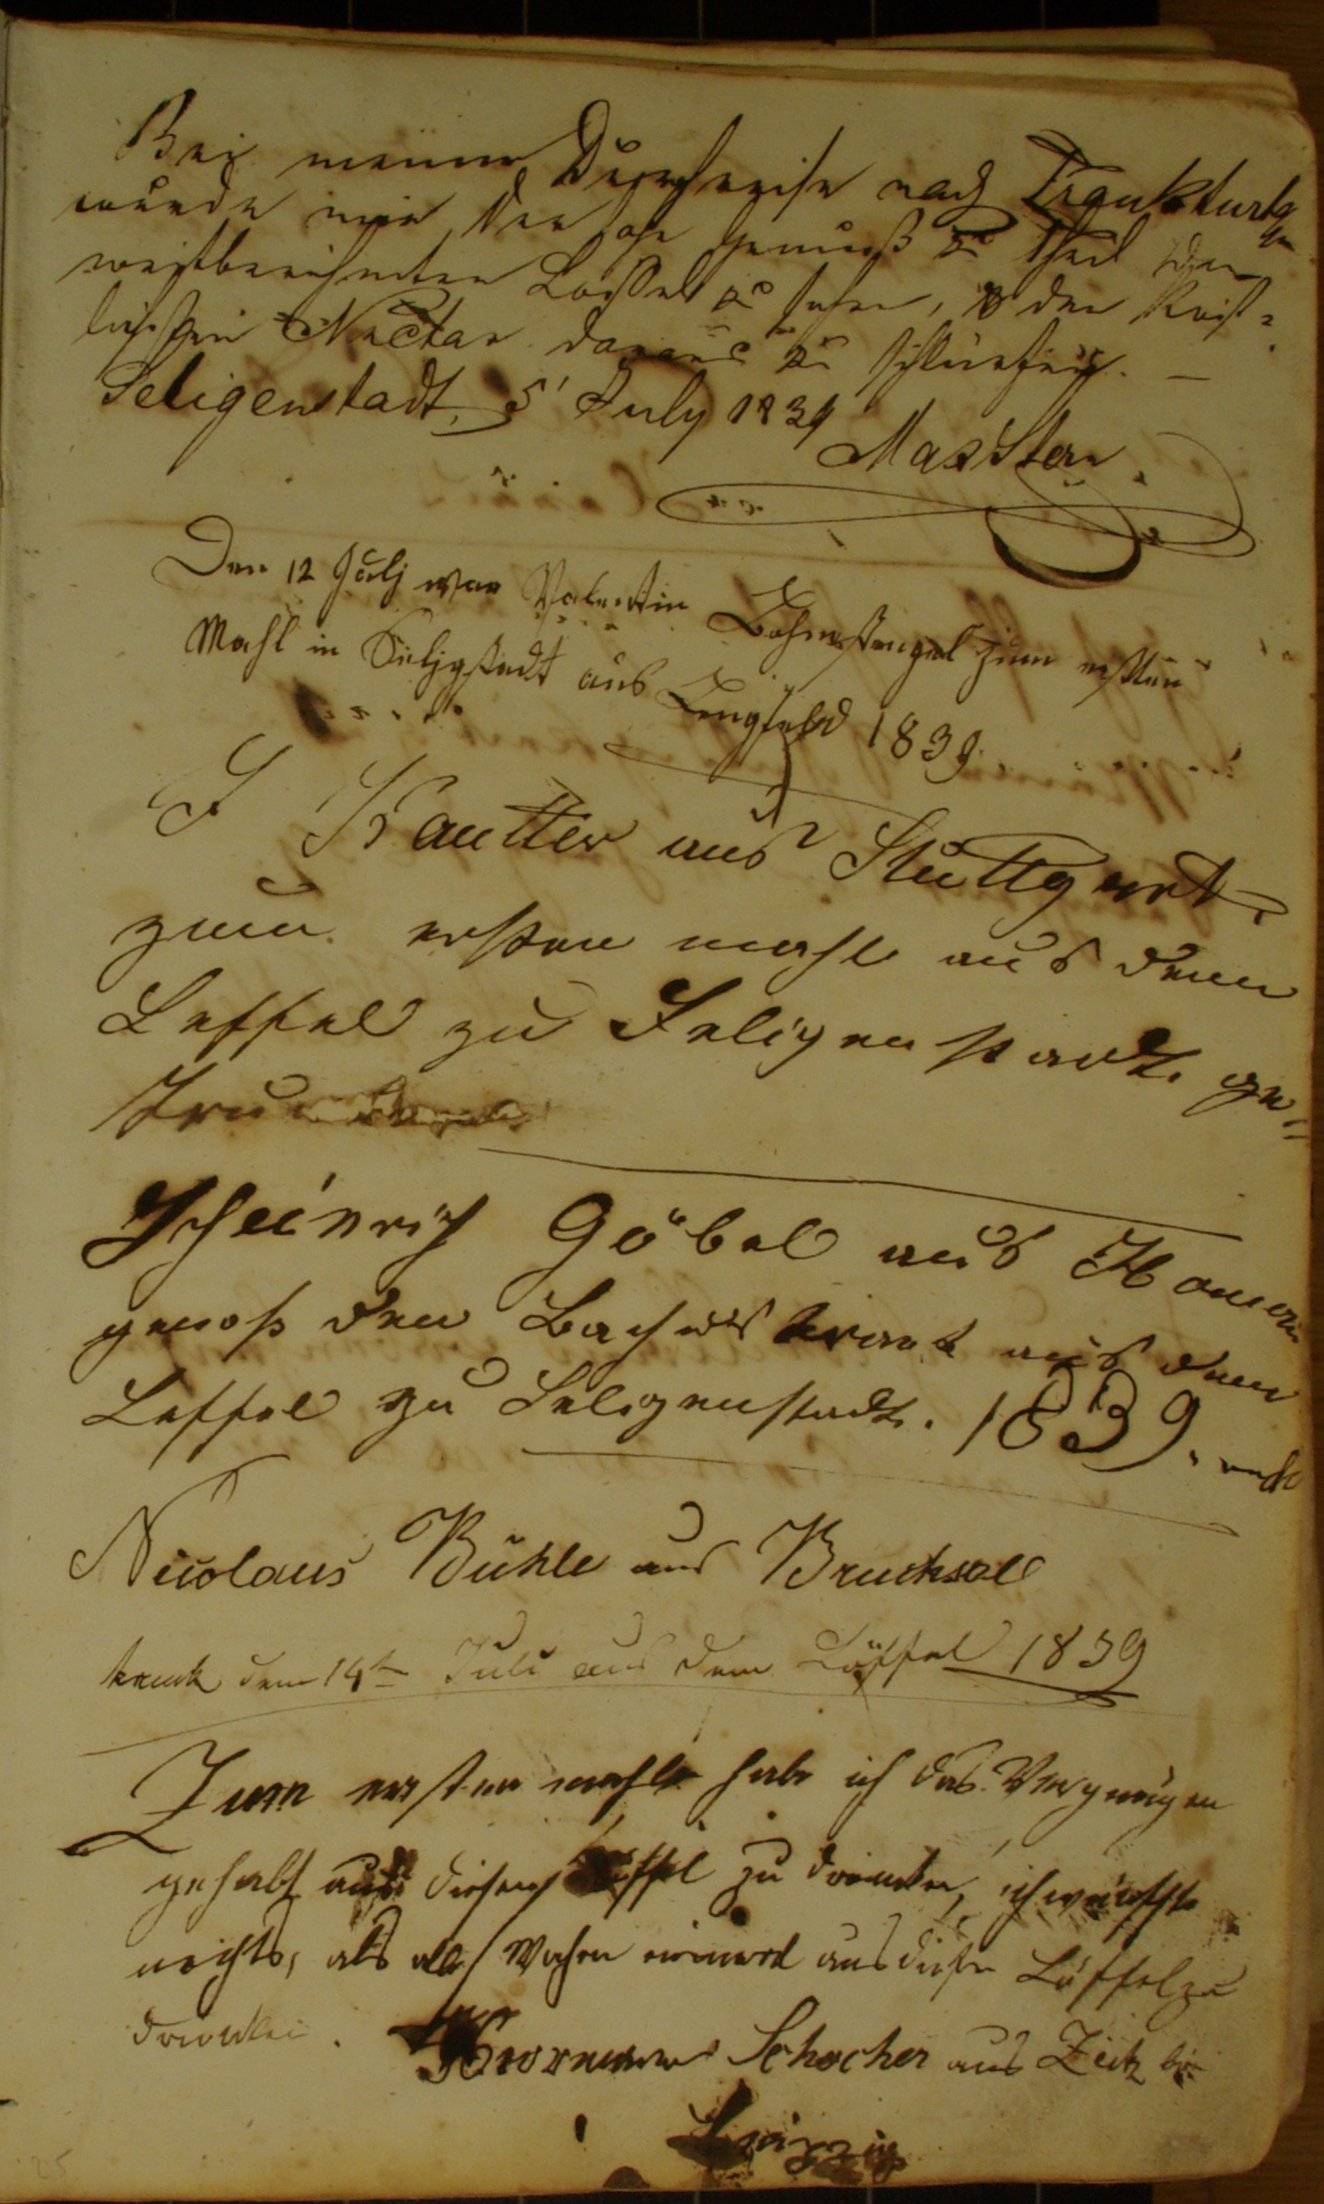 Bei meiner Durchreise nach Frankfurt
wurde mir der hohe Genuß zu Theil den
weitberühmten Löffel zu sehen, & den köst-
lichsten Nectar daraus zu schlürfen. —
Seligenstadt, 5' July 1839
Den 12 Julj war Valentin Bohnstengel zum ersten
Mahl in Seligstadt aus Lengfeld 1839.
J Kautter aus Stuttgart
zum ersten mahl aus dem
Leffel zu Seligenstadt ge=
trunken
Heinrich Göbel aus Hanau
genoß den Bachustrank aus dem
Leffel zu Seligenstadt. 1839.
Nicolaus Bühle aus Bruchsal
trank den 14ten Juli aus dem Löffel 1839
Zum ersten mahle habe ich das Vergnügen
gehabt aus diesem Löffel zu drinken, ich wünschte
nichts, als alle Wochen einmal aus diesen Löffel zu
drinken. Schocher aus Zeitz bei
Leipzig
25